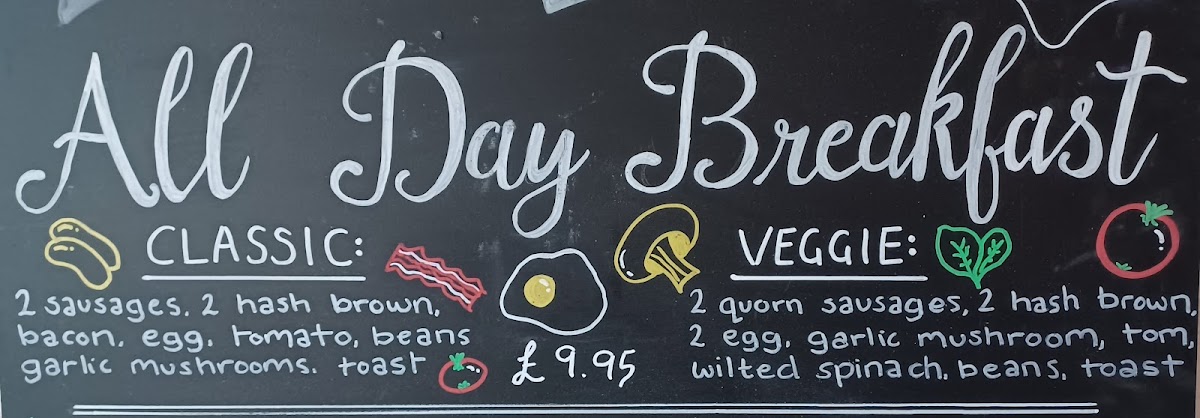 All Day Breakfast
CLASSIC:
2 sausages, 2 hash brown,
bacon, egg, tomato, beans
garlic mushrooms. toast
£9.95
VEGGIE:
2 quorn sausages, 2 hash brown,
2 egg, garlic mushroom, tom,
wilted spinach, beans, toast